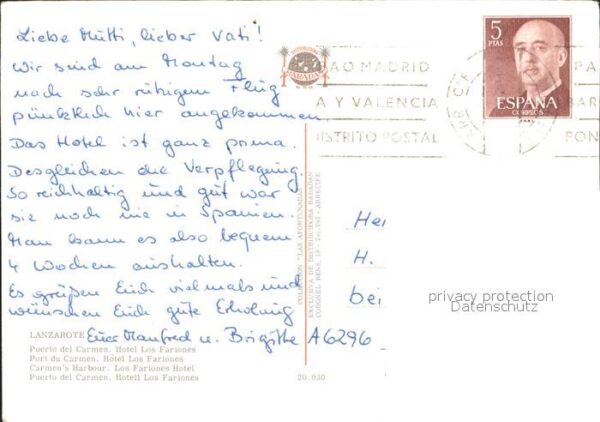 Liebe Mutti, lieber Vati!
Wir sind am Montag
nach sehr ruhigem Flug
pünktlich hier angekommen
Das Hotel ist ganz prima.
Desgleichen die Verpflegung.
So reichhaltig und gut war
sie noch nie in Spanien.
Man kann es also bequem
4 Wochen aushalten.
Es grüßen Euch vielmals und
wünschen Euch gute Erholung
Eure Manfred u. Brigitte
LANZAROTE
Puerto del Carmen. Hotel Los Fariones
Port du Carmen. Hotel Los Fariones
Carmen's Harbour. Los Fariones Hotel
Puerto del Carmen. Hotell Los Fariones
20.030
COLECCION "LAS AFORTUNADAS"
EXCLUSIVA DE DISTRIBUIDORA BADADAN
BADADAN
AO MADRID
A Y VALENCIA
DISTRITO POSTAL
5
PTAS
ESPAÑA
CORREOS
PA
BAR
PON
Her
H.
bei
privacy protection
Datenschutz
A6296